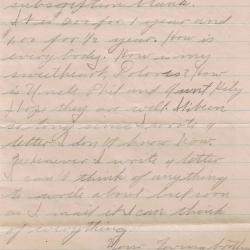 subscription blank.
It is 2.00 for 1 year and
1.00 for 1/2 year. How is
every body. How is my
sweetheart, Dolores? How
is Uncle Phil and Aunt
I hope they are well. It been
so long since I wrote a
letter I don't know how.
Whenever I write a letter
I can't think of anything
to write about but soon
as I mail it I can think
of everything.
Your loving